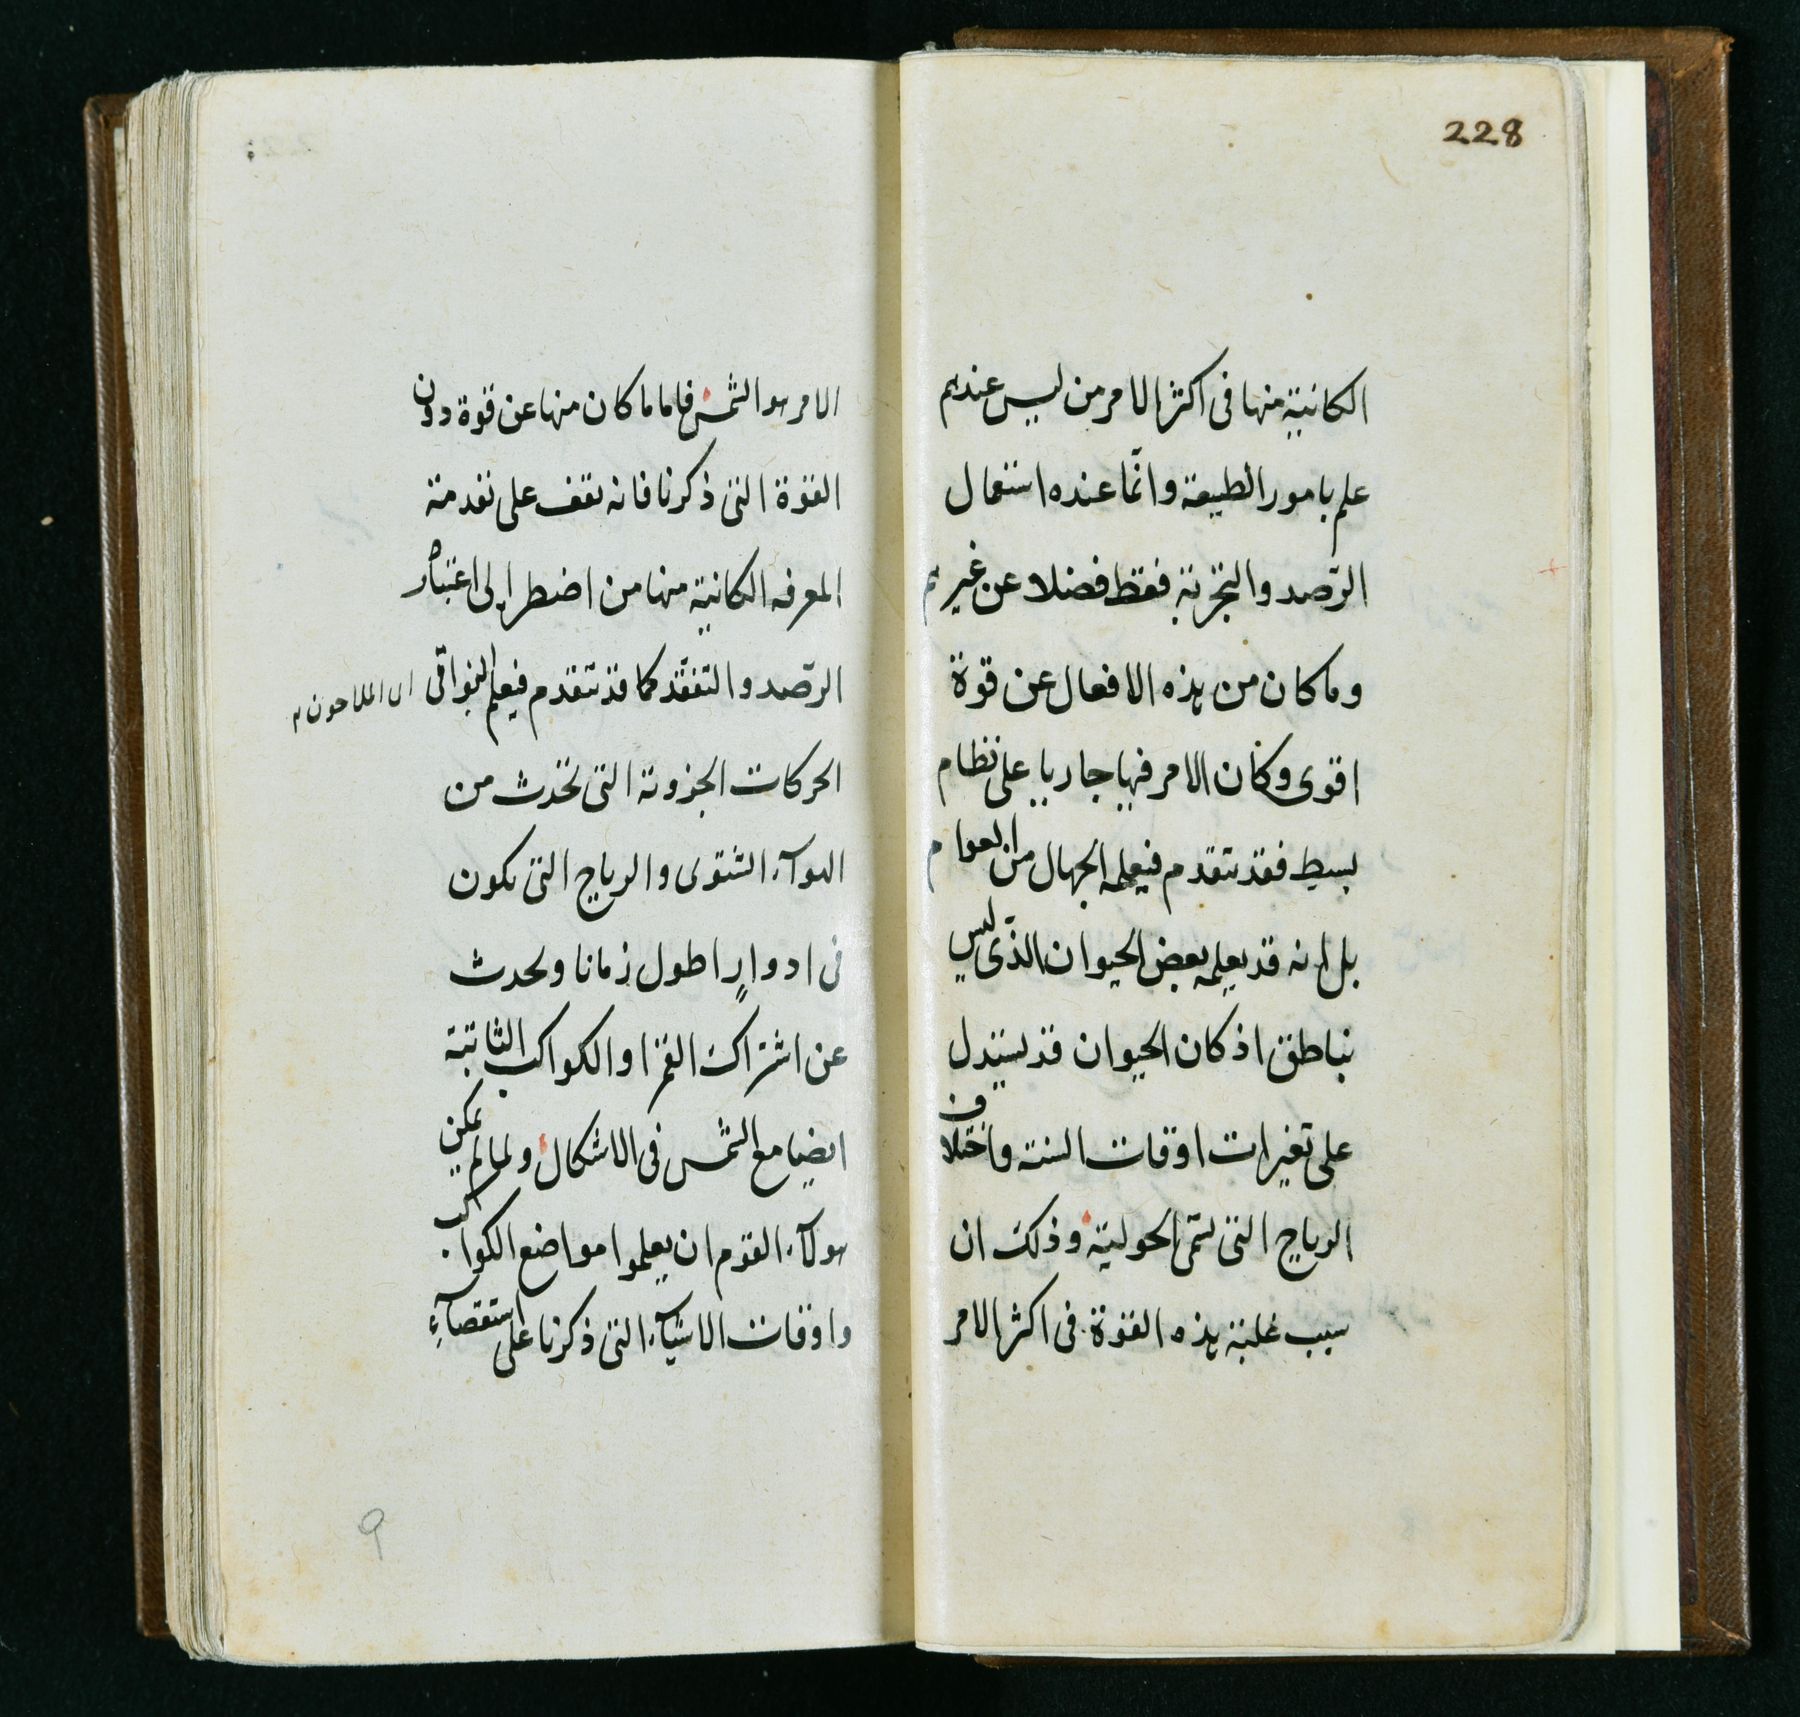 228
الكائنة منها فى اكثر الامر من ليس عندهم
علم بامور الطبيعة وانّما عنده استعمال
الرّصد والتجربة فقط فضلا عن غيرهم
وما كان من هذه الافعال عن قوة
اقوى وكان الامر فيها جاريا على نظام
بسيط فقد يتقدم فيعلمه الجهال من العوام
بل انه قد يعلمه بعض الحيوان الذّى ليس
بناطق اذ كان الحيوان قد يستدل
على تغيرات اوقات السنة واختلاف
الرياح التى تسمّى الحولية وذلك ان
سبب غلبة هذه القوة فى اكثر الامر
الامر هو الشمس فاما ما كان منها عن قوة دون
القوة التى ذكرنا فانه يقف على تقدمة
المعرفه الكائنة منها من اضطر الى اعتباره
الرّصد والتفقّد كما قد يتقدم فيعلم النواتى اى الملاحون م
الحركات الجزوية التى تحدث من
الهوآء الشتوى والرياح التى تكون
فى ادوارٍ اطول زمانا وتحدث
عن اشتراك القمر او الكواكب الثابتة
ايضا مع الشمس فى الاشكال ولما لم يمكن
هولآء القوم ان يعلموا مواضع الكواكب
واوقات الاشيآء التى ذكرنا على استقصآءٍ
9